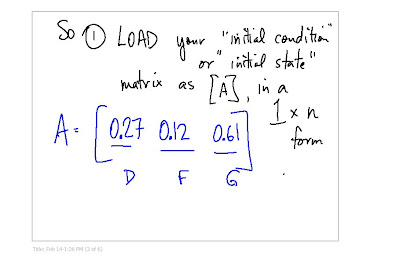 So ① LOAD your "initial condition"
or "initial state"
matrix as [A], in a
1 x n
form
A = [0.27 0.12 0.61]
D F G
Title: Feb 14-1:26 PM (3 of 6)